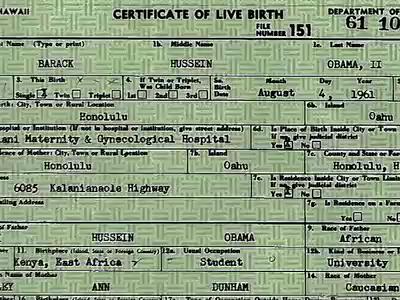 HAWAII CERTIFICATE OF LIVE BIRTH DEPARTMENT OF
FILE NUMBER 151 61 10
Name (Type or print) 1b. Middle Name 1c. Last Name
BARACK HUSSEIN OBAMA, II
3. This Birth 4. If Twin or Triplet, Was Child Born 5a. Birth Date Month Day Year
Single Twin Triplet 1st 2nd 3rd August 4, 1961
Birth: City, Town or Rural Location 6b. Island
Honolulu Oahu
Hospital or Institution (If not in hospital or institution, give street address) 6d. Is Place of Birth Inside City or Town
If no, give judicial district
Maternity & Gynecological Hospital Yes No
Residence of Mother: City, Town or Rural Location 7b. Island 7c. County and State or
Honolulu Oahu Honolulu,
7e. Is Residence Inside City or Town
If no, give judicial district
6085 Kalanianaole Highway Yes No
Mailing Address 7g. Is Residence on a
Yes No
of Father 9. Race of Father
HUSSEIN OBAMA African
11. Birthplace (Island, State or Foreign Country) 12a. Usual Occupation 12b. Kind of Business or
Kenya, East Africa Student University
Name of Mother 14. Race of Mother
ANN DUNHAM Caucasian